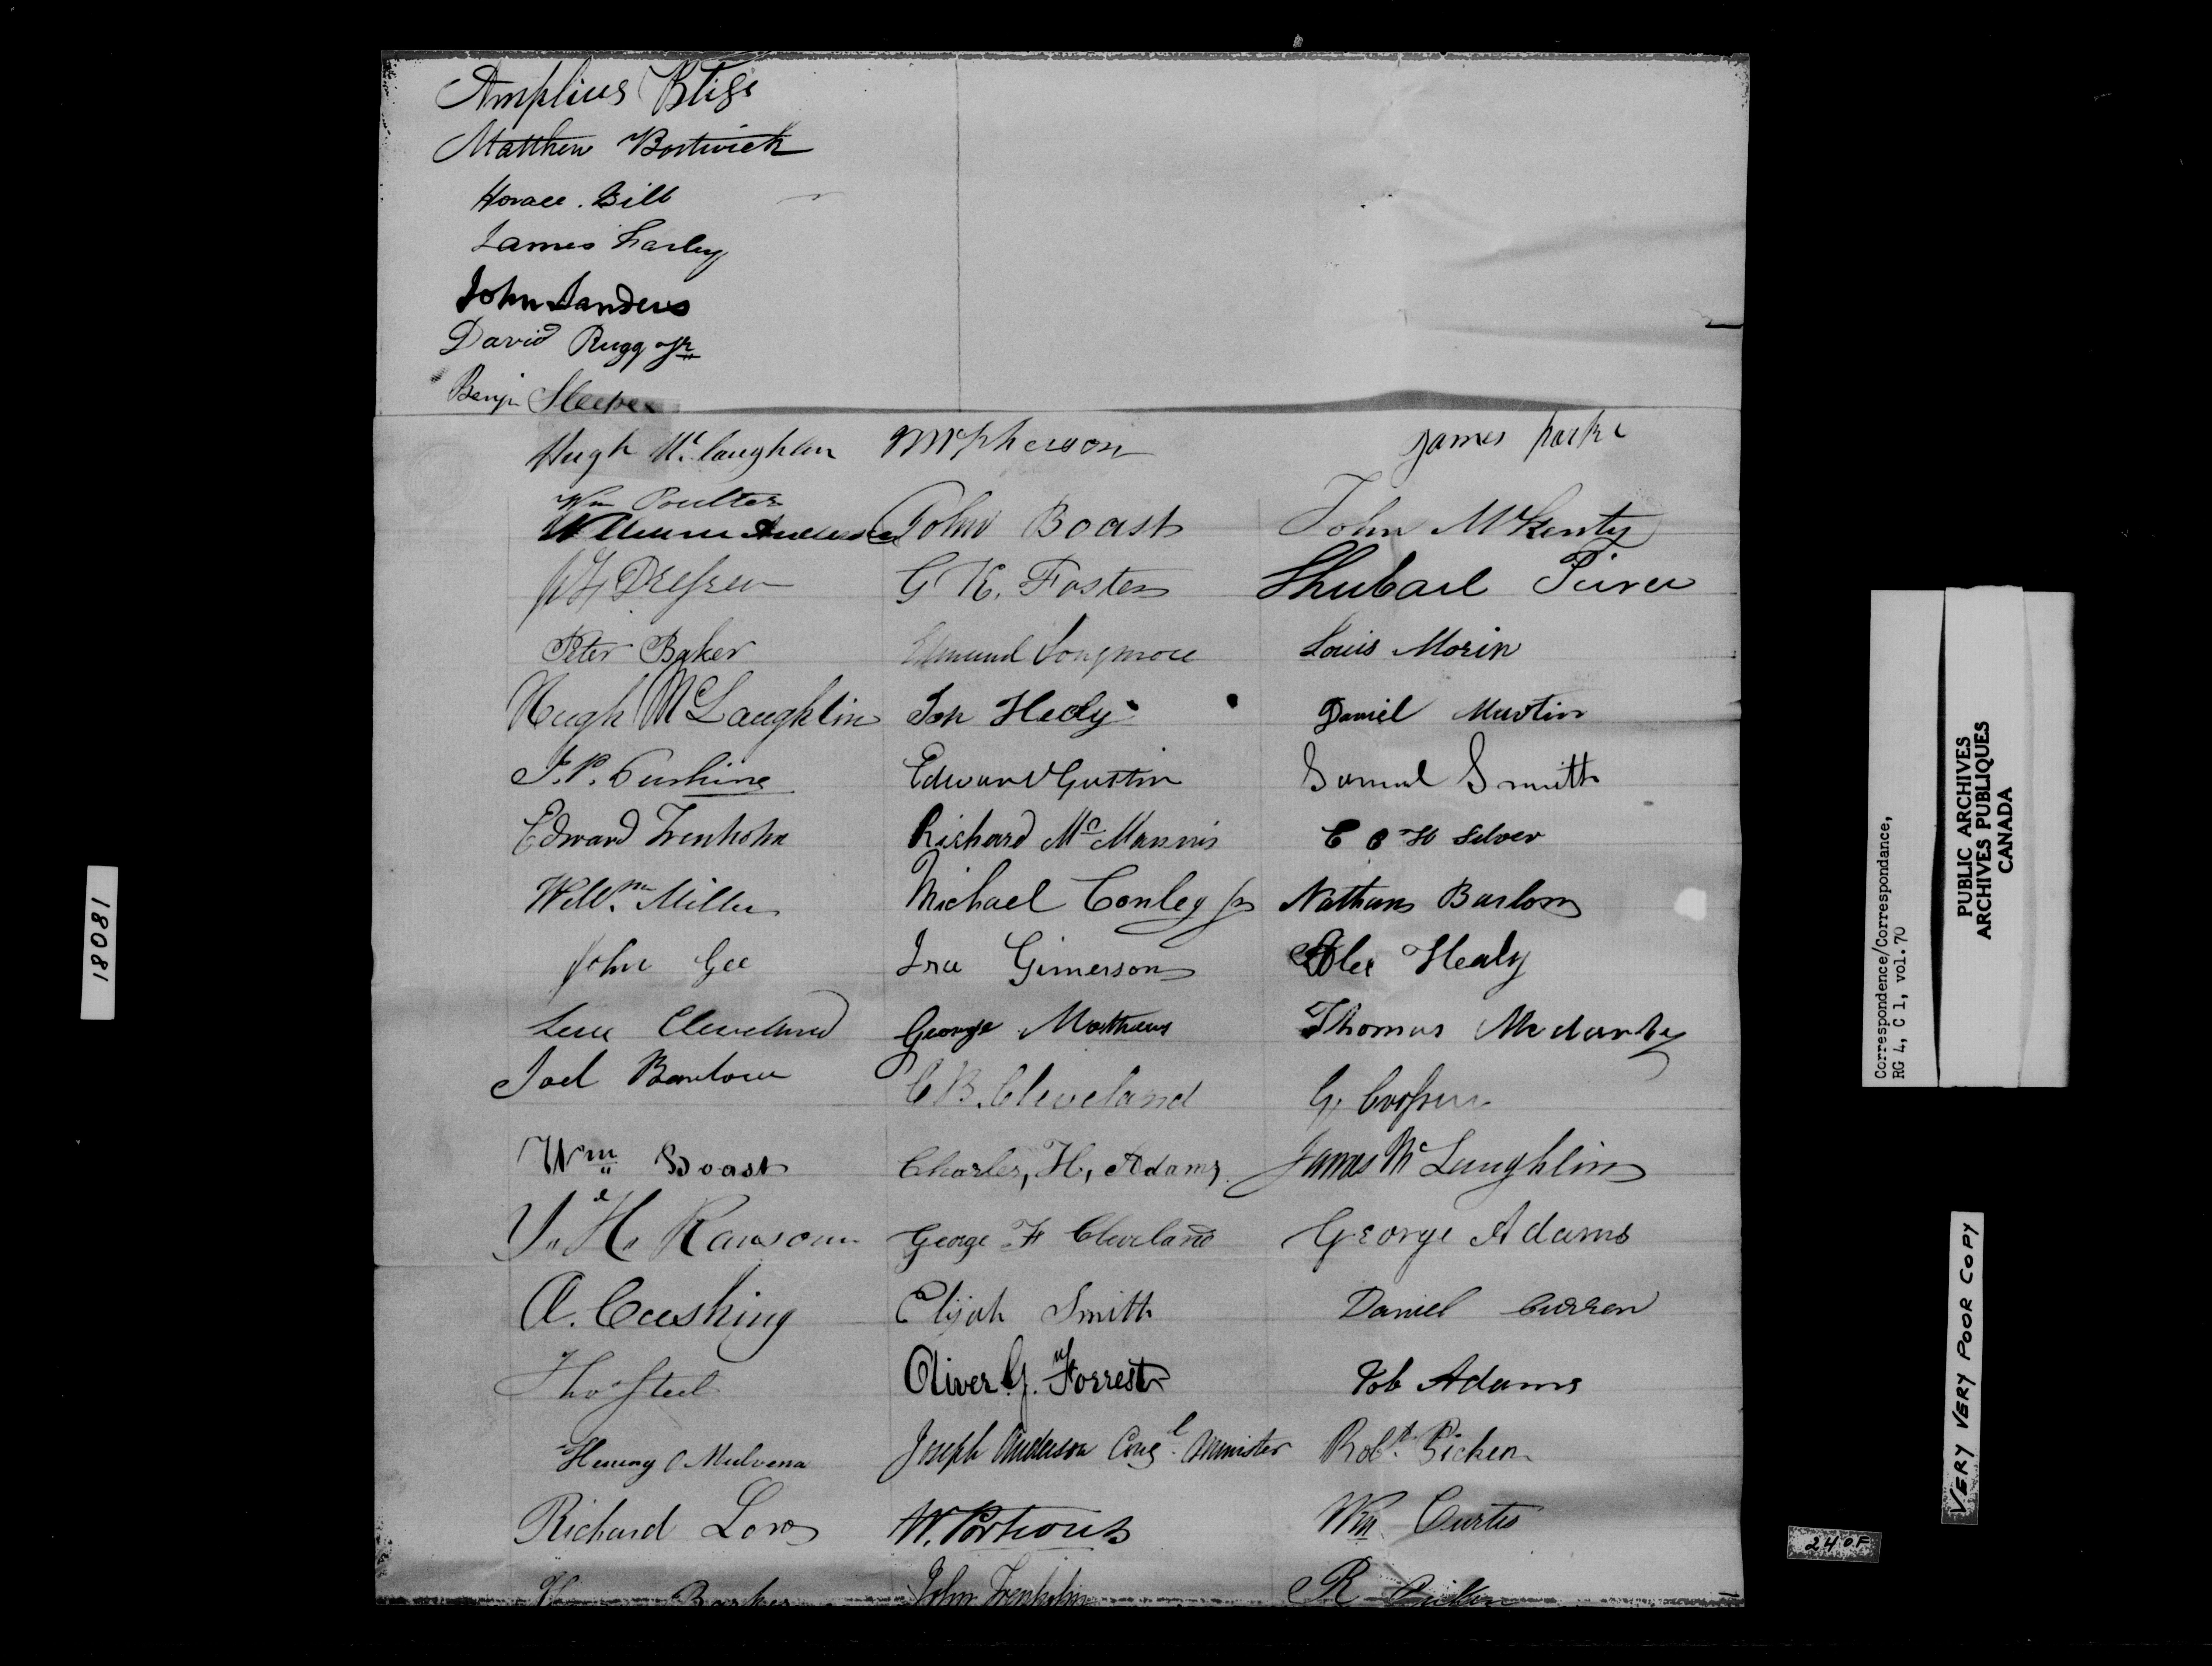 Amplius Bliss
Matthew Bostwick
Horace. Bill
James Farley
John Sanders
David Rugg Jr
Benjn Sleeper
Hugh Mc Laughlan
Wm Poulter
William
Peter Baker
Hugh McLaughlin
J. P. Cushing
Edward Trenholm
Willm. Miller
John Gee
Cleveland
Joel Barlow
Wm Boast
Y. H. Ransom
A. Cushing
Thos Steel
Henry Mulvena
Richard Love
Barker
McPherson
John Boast
G K. Foster
Edmund Longmore
Jon Healy
Edward Gustin
Richard Mc Mannis
Michael Conley Jr
Ira Gimerson
George Matthews
C B. Cleveland
Charles, H, Adams
George F Cleveland
Elijah Smith
Oliver G. Forrest
Joseph Anderson Congl. Minister
W. Portious
John Trenholm
James
John McKenty
Shubael
Louis Morin
Daniel Martin
Samul Smith
C B H Silver
Nathan Barlow
Healy
Thomas
G Cooper
James Mc Laughlin
George Adams
Daniel Curren
Job Adams
Robt. Picken
Wm Curtis
R Picken
18081
Correspondence/Correspondance,
RG 4, C 1, vol. 70
PUBLIC ARCHIVES
ARCHIVES PUBLIQUES
CANADA
VERY VERY POOR COPY
2 4 OF